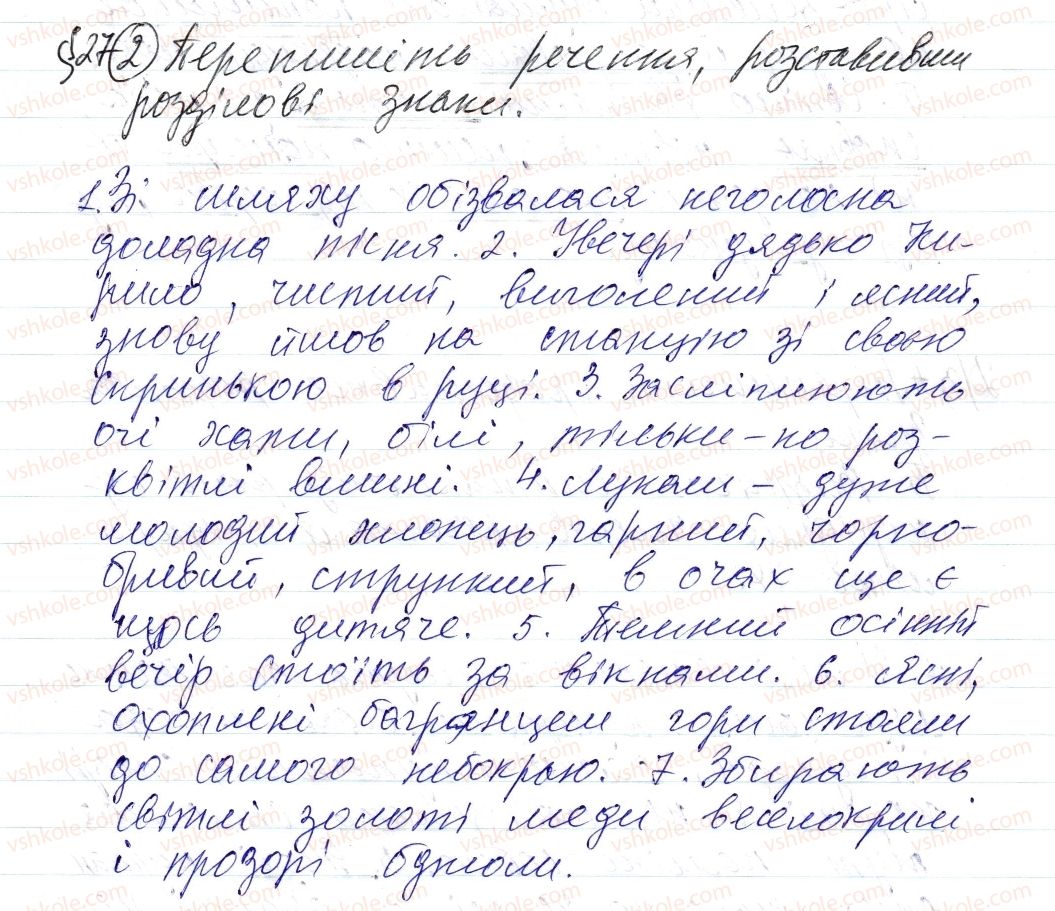 §27(2) Перепишіть речення, розставивши
розділові знаки.
1. Зі шляху обізвалася неголосна
доладна пісня. 2. Увечері дядько Ки-
рило, чистий, виголений і ясний,
знову йшов на станцію зі своєю
скринькою в руці. 3. Засліплюють
очі хати, білі, тільки-но роз-
квітлі вишні. 4. Лукаш – дуже
молодий хлопець, гарний, чорно-
бривий, стрункий, в очах ще є
щось дитяче. 5. Темний осінній
вечір стоїть за вікнами. 6. Ясні,
охоплені багрянцем гори стояли
до самого небокраю. 7. Збирають
світлі золоті меди веселокрилі
і прозорі бджоли.